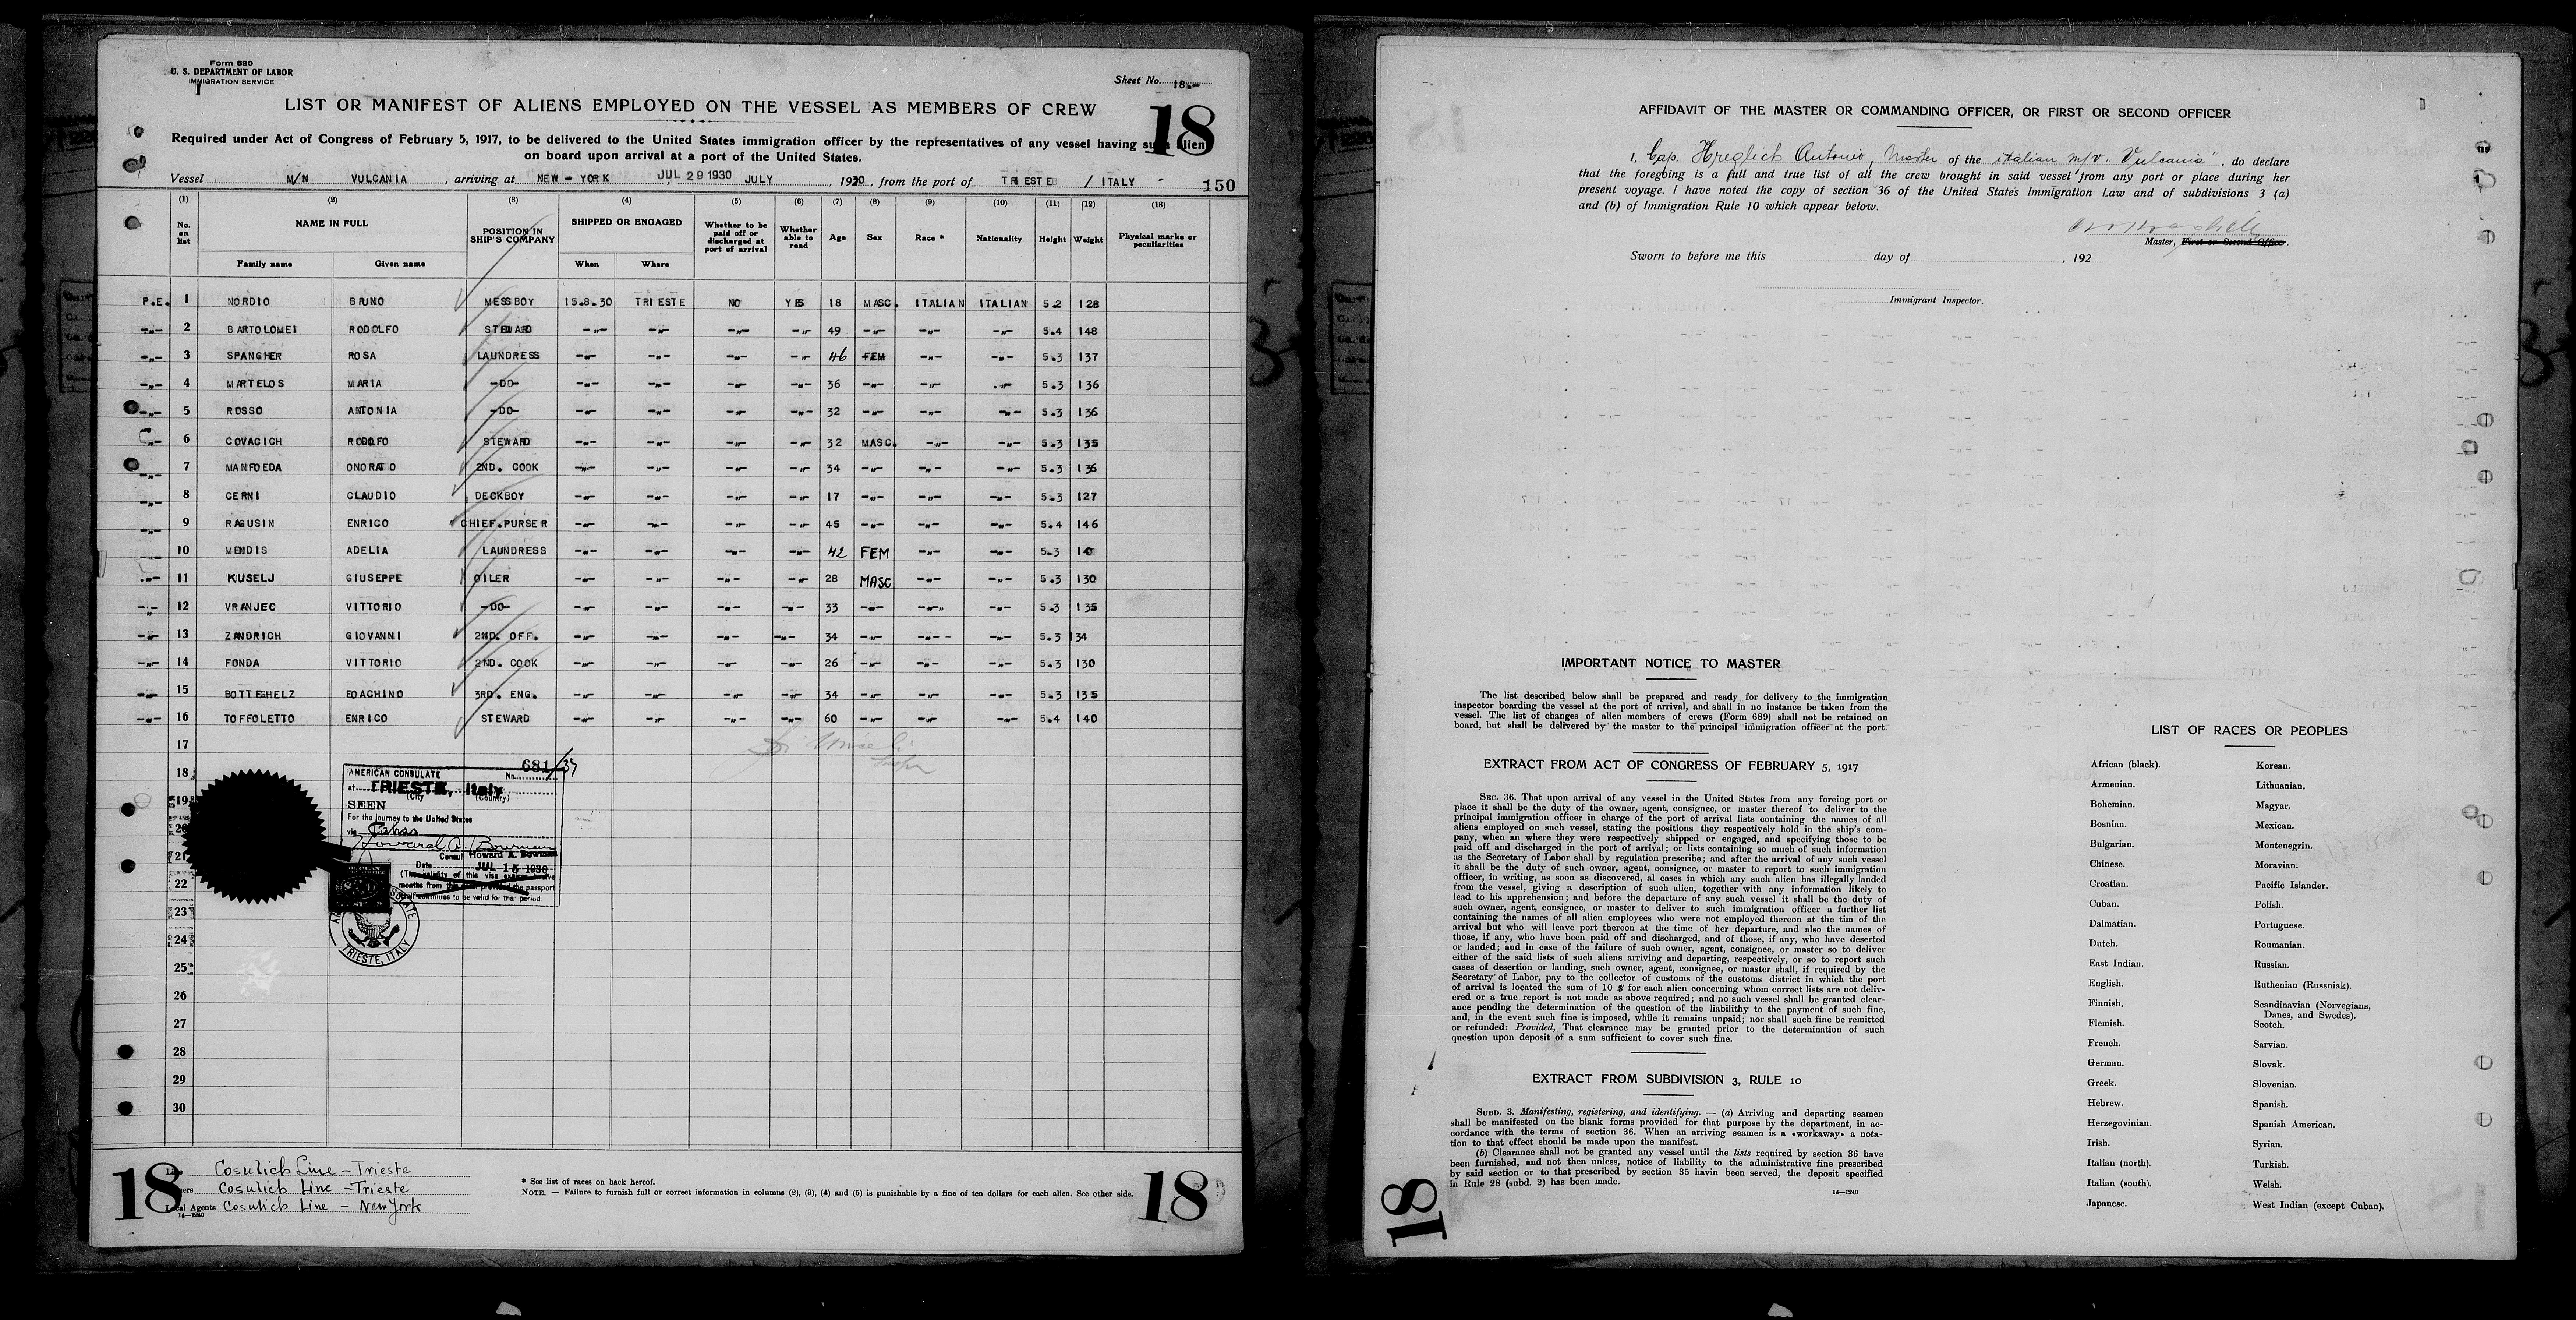 Form 680
U. S. DEPARTMENT OF LABOR
IMMIGRATION SERVICE
Sheet No. 18.-
LIST OR MANIFEST OF ALIENS EMPLOYED ON THE VESSEL AS MEMBERS OF CREW
18
Required under Act of Congress of February 5, 1917, to be delivered to the United States immigration officer by the representatives of any vessel having such alien
on board upon arrival at a port of the United States.
Vessel M/N VULCANIA , arriving at NEW - YORK JUL 29 1930 JULY , 1930 , from the port of TRIESTE / ITALY 150
(1) (2) (3) (4) (5) (6) (7) (8) (9) (10) (11) (12) (13)
No. on list NAME IN FULL POSITION IN SHIP'S COMPANY SHIPPED OR ENGAGED Whether to be paid off or discharged at port of arrival Whether able to read Age Sex Race * Nationality Height Weight Physical marks or peculiarities
Family name Given name When Where
P.E. 1 NORDIO BRUNO MESSBOY 15.8.30 TRIESTE NO YES 18 MASC. ITALIAN ITALIAN 5.2 128
-"- 2 BARTOLOMEI RODOLFO STEWARD -"- -"- -"- -"- 49 -"- -"- -"- 5.4 148
-"- 3 SPANGHER ROSA LAUNDRESS -"- -"- -"- -"- 46 FEM -"- -"- 5.3 137
-"- 4 MARTELOS MARIA -DO- -"- -"- -"- -"- 36 -"- -"- -"- 5.3 136
-"- 5 ROSSO ANTONIA -DO- -"- -"- -"- -"- 32 -"- -"- -"- 5.3 136
-"- 6 COVACICH RODOLFO STEWARD -"- -"- -"- -"- 32 MASC. -"- -"- 5.3 135
-"- 7 MANFOEDA ONORATO 2ND. COOK -"- -"- -"- -"- 34 -"- -"- -"- 5.3 136
-"- 8 CERNI CLAUDIO DECKBOY -"- -"- -"- -"- 17 -"- -"- -"- 5.3 127
-"- 9 RAGUSIN ENRICO CHIEF.PURSER -"- -"- -"- -"- 45 -"- -"- -"- 5.4 146
-"- 10 MENDIS ADELIA LAUNDRESS -"- -"- -"- -"- 42 FEM -"- -"- 5.3 140
-"- 11 KUSELJ GIUSEPPE OILER -"- -"- -"- -"- 28 MASC -"- -"- 5.3 130
-"- 12 VRANJEC VITTORIO -DO- -"- -"- -"- -"- 33 -"- -"- -"- 5.3 135
-"- 13 ZANDRICH GIOVANNI 2ND. OFF. -"- -"- -"- -"- 34 -"- -"- -"- 5.3 134
-"- 14 FONDA VITTORIO 2ND. COOK -"- -"- -"- -"- 26 -"- -"- -"- 5.3 130
-"- 15 BOTTEGHELZ EOACHINO 3RD. ENG. -"- -"- -"- -"- 34 -"- -"- -"- 5.3 135
-"- 16 TOFFOLETTO ENRICO STEWARD -"- -"- -"- -"- 60 -"- -"- -"- 5.4 140
17
18
19
20
21
22
23
24
25
26
27
28
29
30
AMERICAN CONSULATE No. 681/37
at TRIESTE, Italy
(City (Country)
SEEN
For the journey to the United States
via Patras
Howard A. Bowman
Consul Howard A. Bowman
Date JUL 15 1930
(The validity of this visa expires
months from this date provided the passport
continues to be valid for that period.
TRIESTE, ITALY
18
Cosulich Line - Trieste
Cosulich Line - Trieste
Local Agents Cosulich Line - New York
14—1240
* See list of races on back hereof.
NOTE. — Failure to furnish full or correct information in columns (2), (3), (4) and (5) is punishable by a fine of ten dollars for each alien. See other side.
18
AFFIDAVIT OF THE MASTER OR COMMANDING OFFICER, OR FIRST OR SECOND OFFICER
I, Cap. Hreglich Antonio, Master of the italian m/v "Vulcania", do declare
that the foregoing is a full and true list of all the crew brought in said vessel from any port or place during her
present voyage. I have noted the copy of section 36 of the United States Immigration Law and of subdivisions 3 (a)
and (b) of Immigration Rule 10 which appear below.
Master, First or Second Officer.
Sworn to before me this day of , 192
Immigrant Inspector.
IMPORTANT NOTICE TO MASTER
The list described below shall be prepared and ready for delivery to the immigration
inspector boarding the vessel at the port of arrival, and shall in no instance be taken from the
vessel. The list of changes of alien members of crews (Form 689) shall not be retained on
board, but shall be delivered by the master to the principal immigration officer at the port.
EXTRACT FROM ACT OF CONGRESS OF FEBRUARY 5, 1917
SEC. 36. That upon arrival of any vessel in the United States from any foreing port or
place it shall be the duty of the owner, agent, consignee, or master thereof to deliver to the
principal immigration officer in charge of the port of arrival lists containing the names of all
aliens employed on such vessel, stating the positions they respectively hold in the ship's com-
pany, when an where they were respectively shipped or engaged, and specifying those to be
paid off and discharged in the port of arrival; or lists containing so much of such information
as the Secretary of Labor shall by regulation prescribe; and after the arrival of any such vessel
it shall be the duty of such owner, agent, consignee, or master to report to such immigration
officer, in writing, as soon as discovered, al cases in which any such alien has illegally landed
from the vessel, giving a description of such alien, together with any information likely to
lead to his apprehension; and before the departure of any such vessel it shall be the duty of
such owner, agent, consignee, or master to deliver to such immigration officer a further list
containing the names of all alien employees who were not employed thereon at the tim of the
arrival but who will leave port thereon at the time of her departure, and also the names of
those, if any, who have been paid off and discharged, and of those, if any, who have deserted
or landed; and in case of the failure of such owner, agent, consignee, or master so to deliver
either of the said lists of such aliens arriving and departing, respectively, or so to report such
cases of desertion or landing, such owner, agent, consignee, or master shall, if required by the
Secretary of Labor, pay to the collector of customs of the customs district in which the port
of arrival is located the sum of 10 $ for each alien concerning whom correct lists are not deliv-
ered or a true report is not made as above required; and no such vessel shall be granted clear-
ance pending the determination of the question of the liabilithy to the payment of such fine,
and, in the event such fine is imposed, while it remains unpaid; nor shall such fine be remitted
or refunded: Provided, That clearance may be granted prior to the determination of such
question upon deposit of a sum sufficient to cover such fine.
EXTRACT FROM SUBDIVISION 3, RULE 10
SUBD. 3. Manifesting, registering, and identifying. — (a) Arriving and departing seamen
shall be manifested on the blank forms provided for that purpose by the department, in ac-
cordance with the terms of section 36. When an arriving seamen is a «workaway» a nota-
tion to that effect should be made upon the manifest.
(b) Clearance shall not be granted any vessel until the lists required by section 36 have
been furnished, and not then unless, notice of liability to the administrative fine prescribed
by said section or to that prescribed by section 35 havin been served, the deposit specified
in Rule 28 (subd. 2) has been made.
14—1240
18
LIST OF RACES OR PEOPLES
African (black).
Armenian.
Bohemian.
Bosnian.
Bulgarian.
Chinese.
Croatian.
Cuban.
Dalmatian.
Dutch.
East Indian.
English.
Finnish.
Flemish.
French.
German.
Greek.
Hebrew.
Herzegovinian.
Irish.
Italian (north).
Italian (south).
Japanese.
Korean.
Lithuanian.
Magyar.
Mexican.
Montenegrin.
Moravian.
Pacific Islander.
Polish.
Portuguese.
Roumanian.
Russian.
Ruthenian (Russniak).
Scandinavian (Norvegians,
Danes, and Swedes).
Scotch.
Sarvian.
Slovak.
Slovenian.
Spanish.
Spanish American.
Syrian.
Turkish.
Welsh.
West Indian (except Cuban).